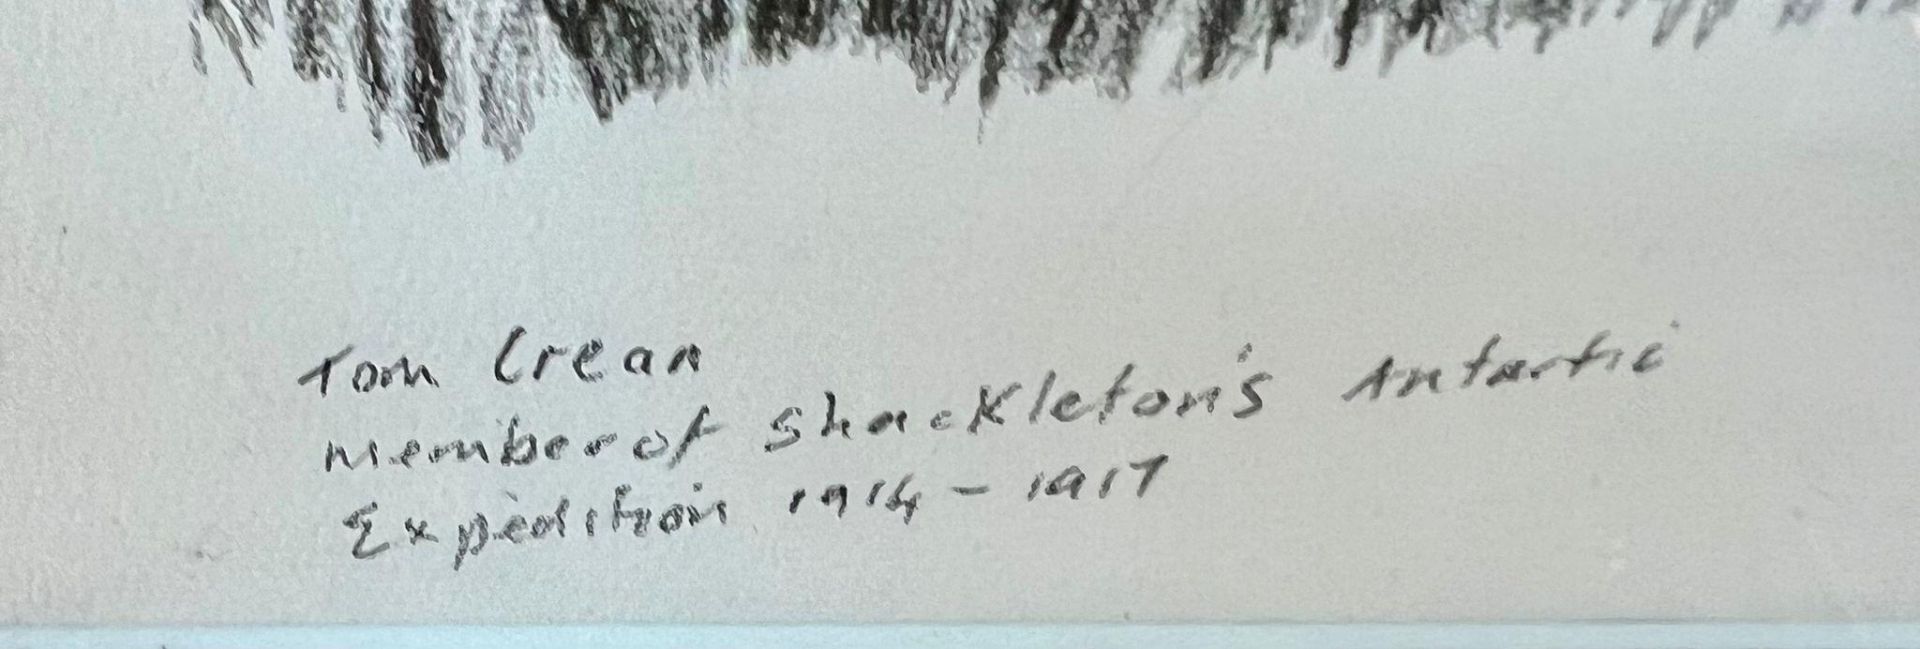 Tom Crean
member of Shackleton's Antartic
Expedition 1914 - 1917